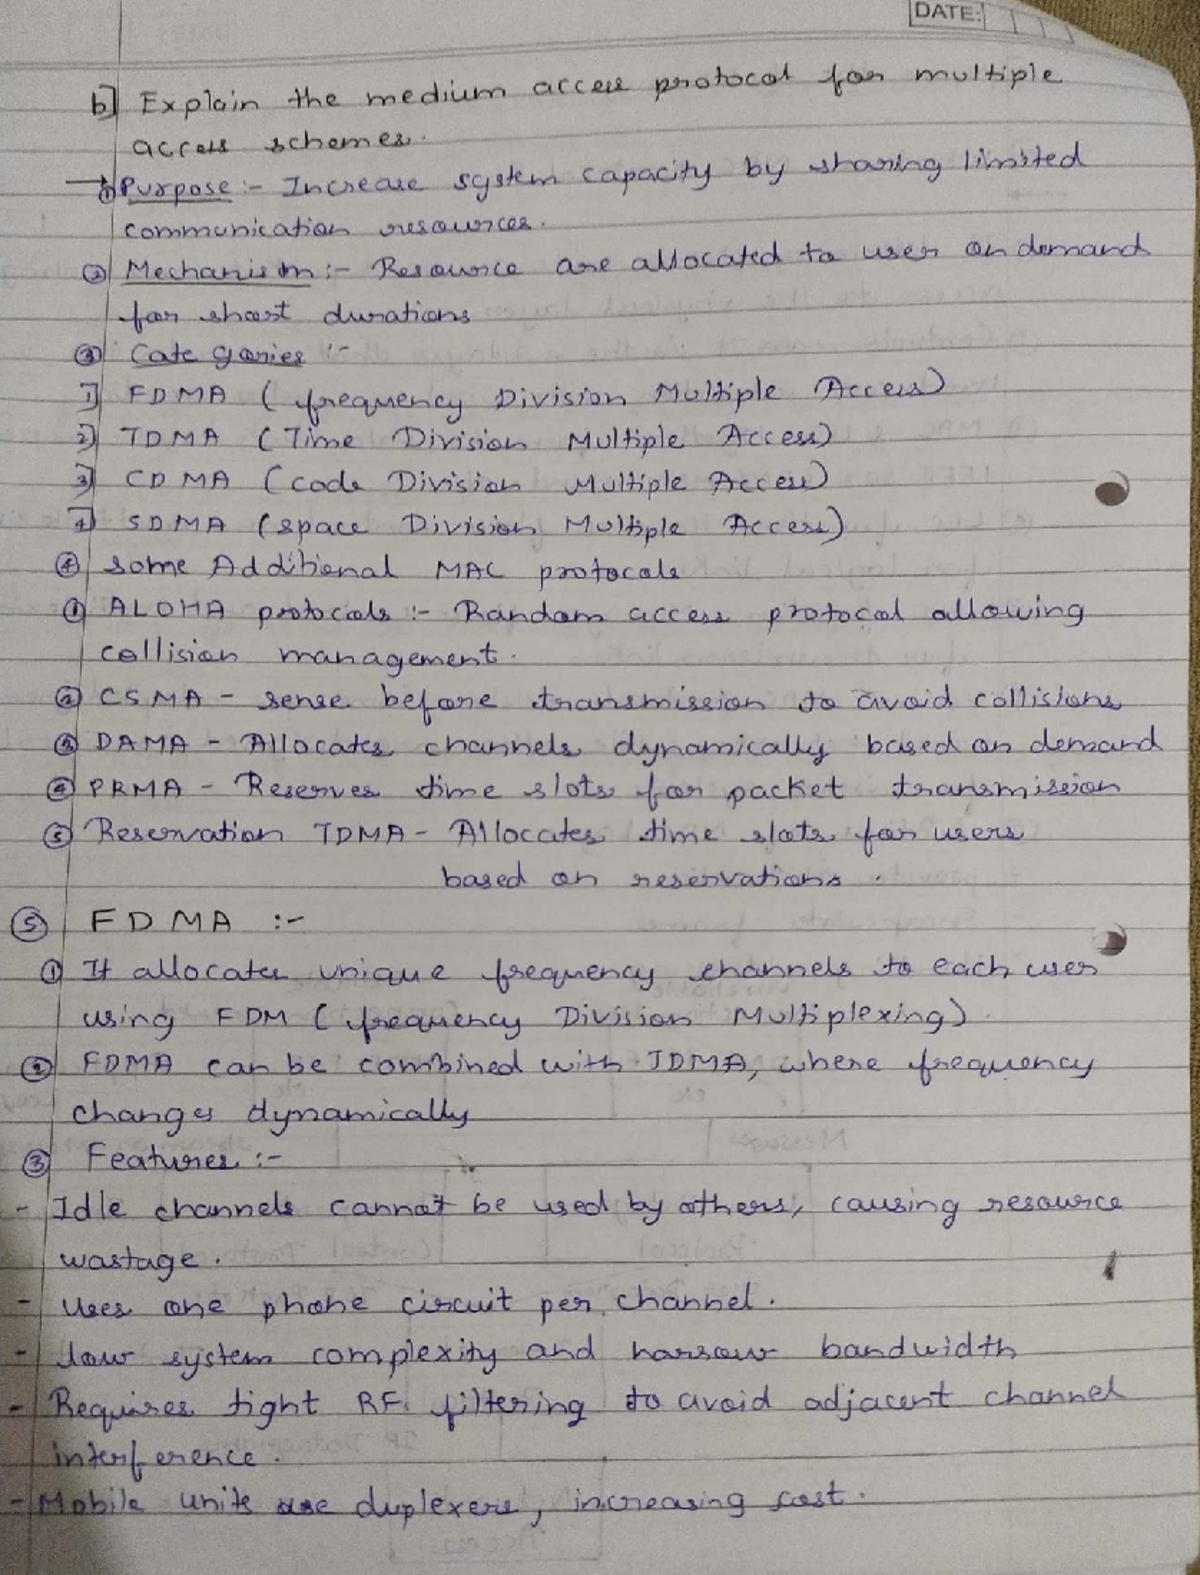 DATE:
b] Explain the medium access protocol for multiple
access schemes.
→ ① Purpose :- Increase system capacity by sharing limited
communication resources.
② Mechanism :- Resource are allocated to user on demand
for short durations
③ Categories :-
1] FDMA (frequency Division Multiple Access)
2] TDMA (Time Division Multiple Access)
3] CDMA (code Division Multiple Access)
4] SDMA (space Division Multiple Access)
④ some Additional MAC protocols
① ALOHA protocols :- Random access protocol allowing
collision management.
② CSMA - sense before transmission to avoid collisions
③ DAMA - Allocates channels dynamically based on demand
④ PRMA - Reserves time slots for packet transmission
⑤ Reservation TDMA - Allocates time slots for users
based on reservations.
⑤ FDMA :-
① It allocates unique frequency channels to each user
using FDM (frequency Division Multiplexing)
② FDMA can be combined with TDMA, where frequency
changes dynamically
③ Features :-
- Idle channels cannot be used by others, causing resource
wastage.
- Uses one phone circuit per channel.
- low system complexity and narrow bandwidth
- Requires tight RF filtering to avoid adjacent channel
interference.
- Mobile units use duplexers, increasing cost.